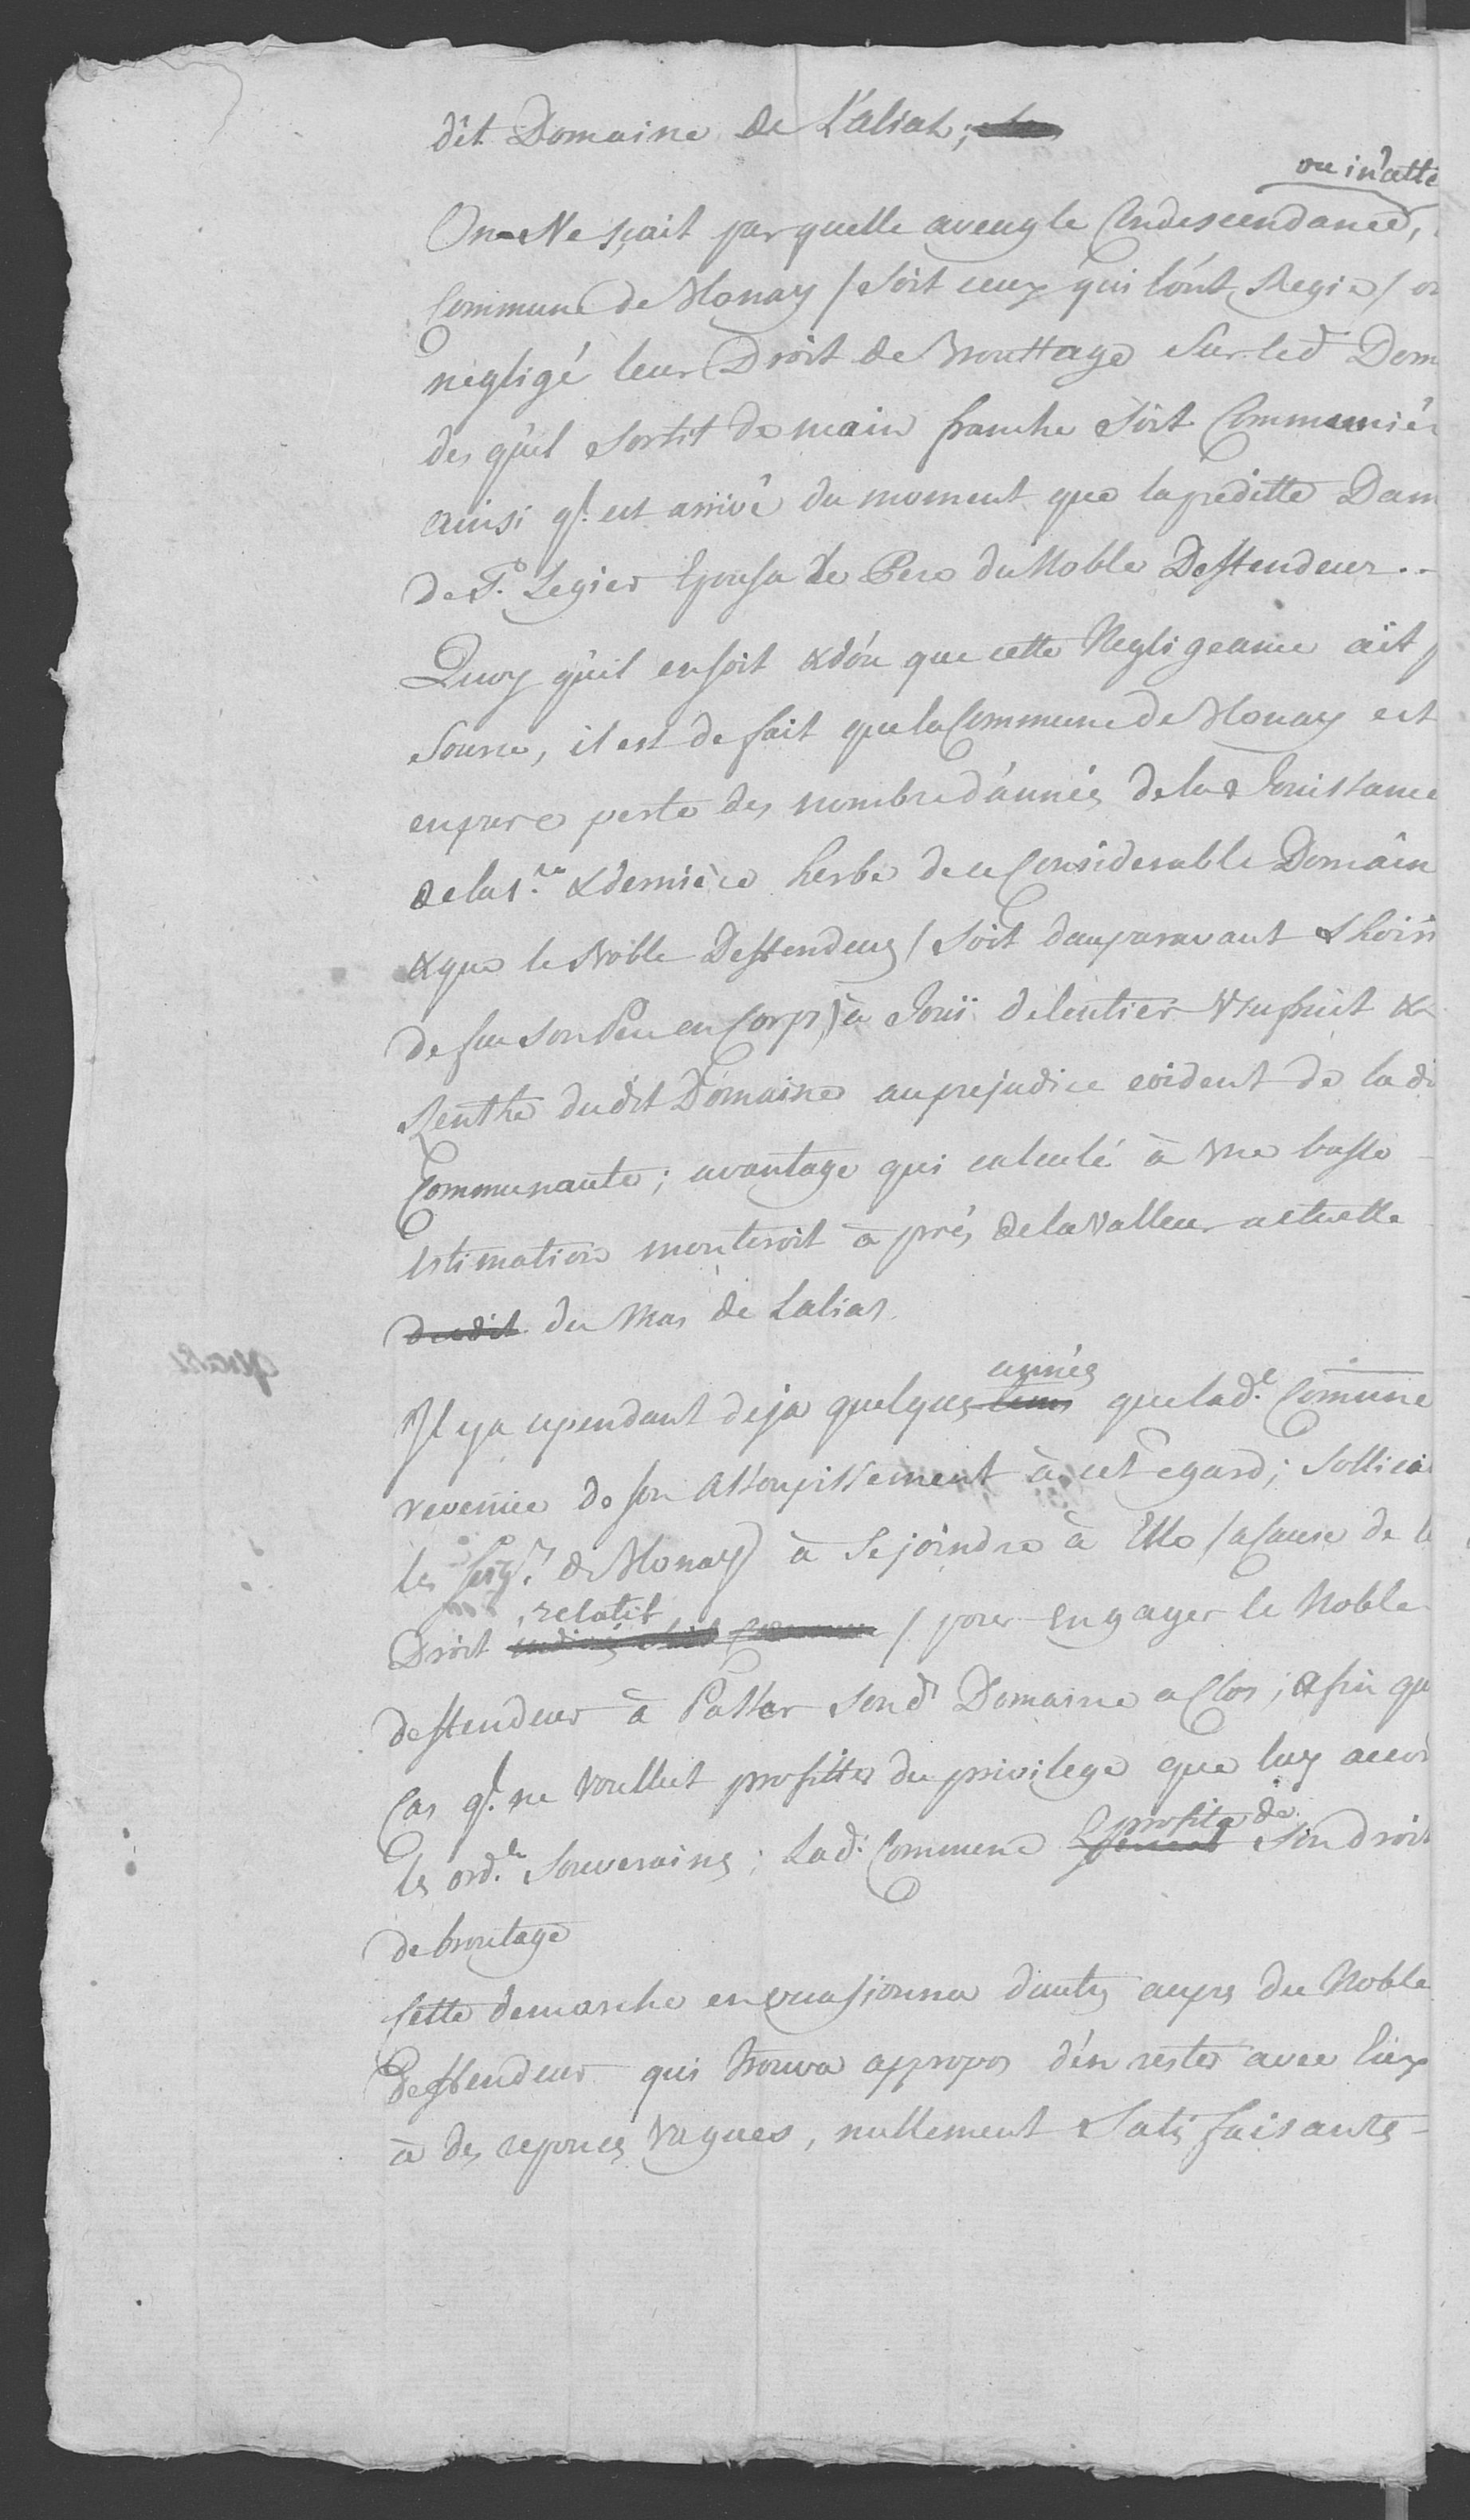 dit Domaine de L'aliat;
ou in'atte
On Ne sçait par quelle aveugle Condescendance,
Commune de Monay / Soit ceux qui l'ont Regie / on
négligé leur Droit de Brouttage Sur led Dom
des qu'il Sortit de main franche Soit Communiér
ainsi q'l est arrivé du moment que la preditte Dam
De St. Legier Epousa le Pere du Noble Deffendeur..
Quoy qu'il en soit & d'ou que cette Negligeance ait
Source, il est de fait que la Commune de Monay est
en pure perte des nombre d'année de la Jouissance
de la 1.re & derniére herbe de ce Considerable Domain
& que le Noble Deffendeur / Soit dauparavant L'hoirie
de feu son Peu en Corps / à Joui de l'entier Usufruit &
Renthe dudit Domaine au prejudice evident de la di
Communauté; avantage qui calculé à Une basse
Estimation monteroit à près de la Valleur actuelle
dudit du Mas de Lalias.
années
Il y a cependant deja quelques tems que lad.e Comune
revenüe de son Assoupissement à cet égard; Sollicit
les Seig.rs de Monay à Se joindre à Elle / a cause de le
relatif
Droit / pour Engager le Noble
deffendeur à Passer Sond Domaine a Clos; afin qu
Cas q'l ne Voullut profitter du privilege que luy accor
profita de
les ord.es Souveraines; Lad. Commune Son droit
de broutage
Cette demarche en occasionna d'autes aupres du Noble
Deffendeur qui trouva apropos d'en rester avec Eux
à des reponces Vagues, nullement Satisfaisantes